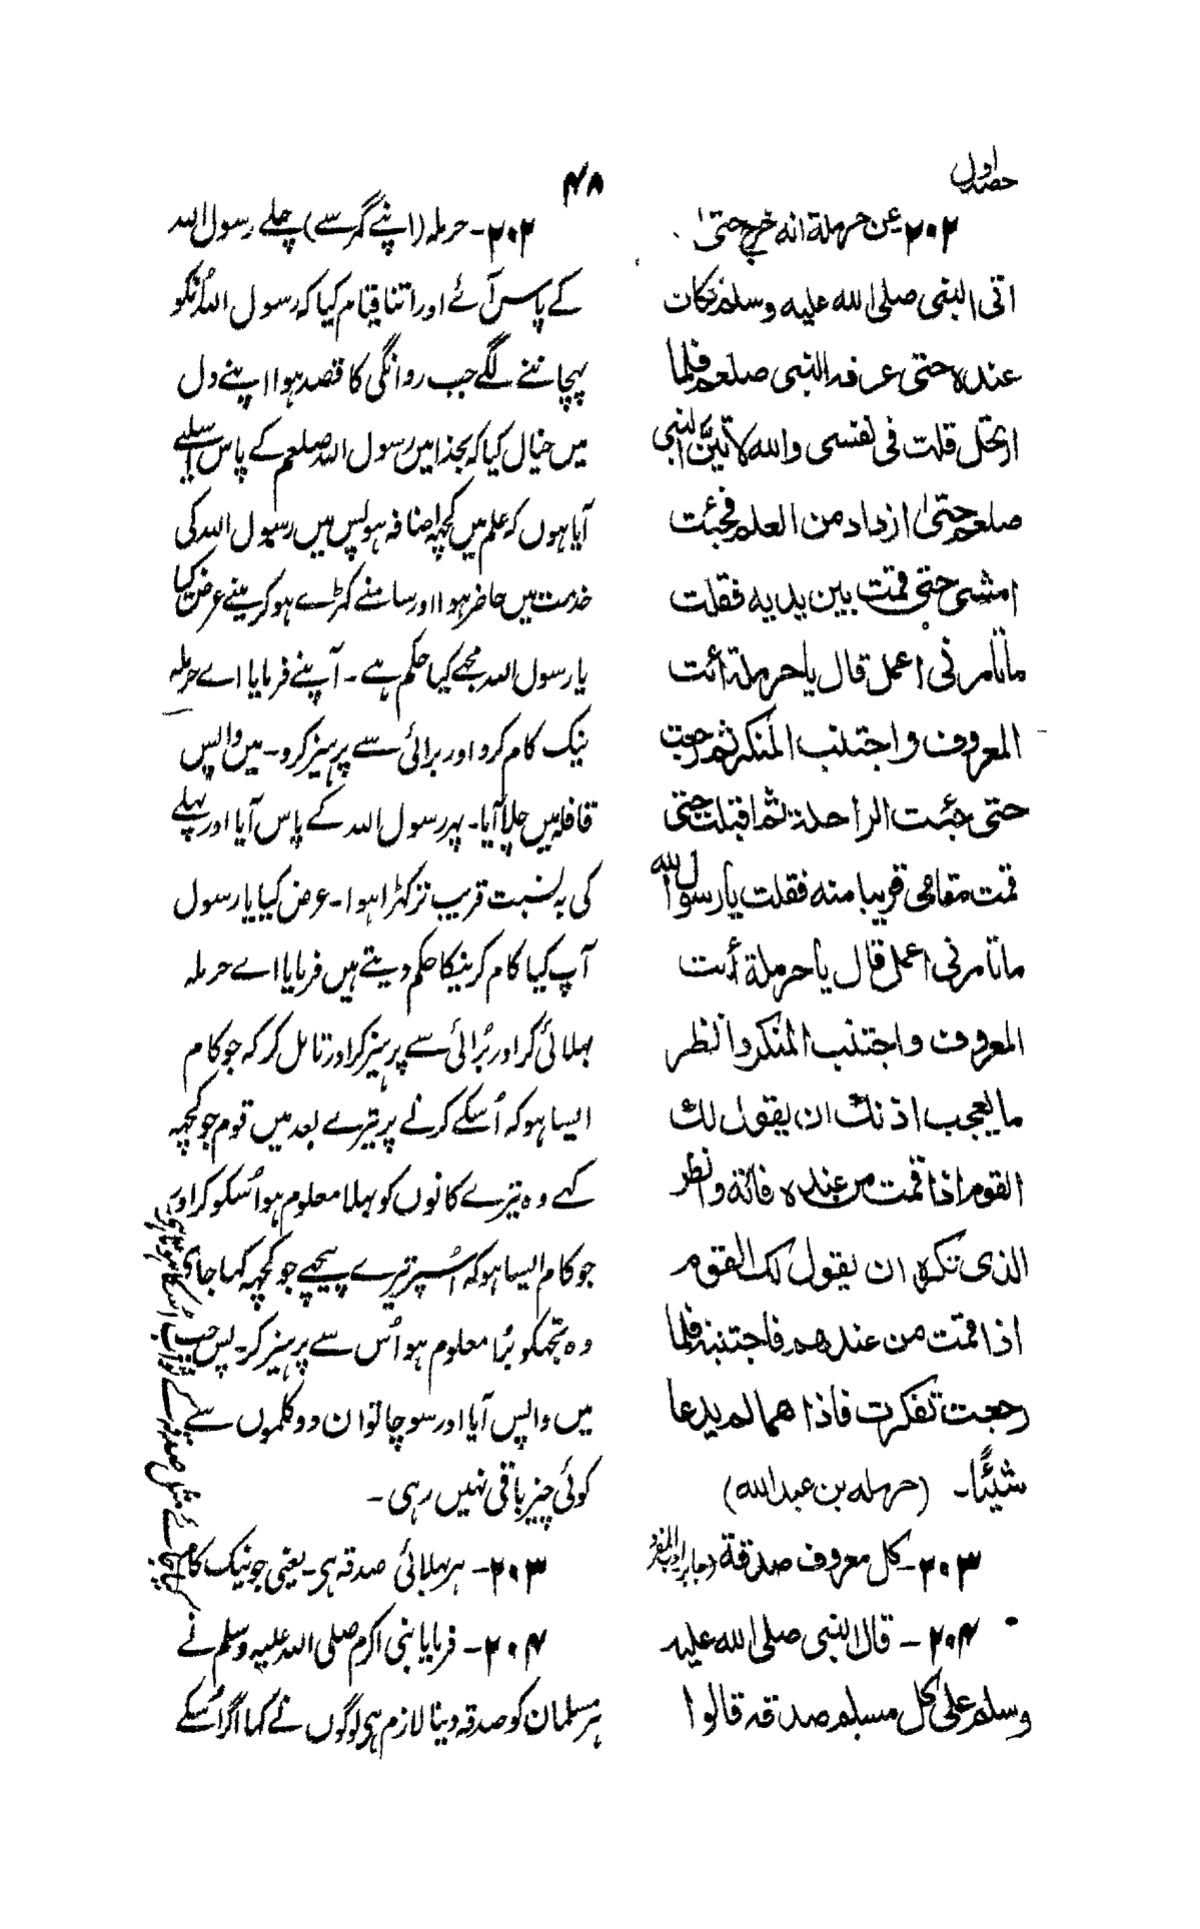 حصہ اول
۴۸
۲۰۲- عن حرملة انه خرج حتیٰ
اتی النبی صلی الله علیه وسلم فکان
عنده حتی عرفه النبی صلعم فلما
ارتحل قلت فی نفسی والله لاٰتینَّ النبی
صلعم حتیٰ ازداد من العلم فجئت
امشی حتی قمت بین یدیه فقلت
ما تأمرنی اعمل قال یا حرملة ائت
المعروف واجتنب المنکر ثم رجعت
حتی جئت الراحلة ثم اقبلت حتی
قمت مقامی قریبا منه فقلت یا رسول الله
ما تأمرنی اعمل قال یا حرملة أئت
المعروف واجتنب المنکر وانظر
ما یعجب اذنک ان یقول لک
القوم اذا قمت من عنده فاته وانظر
الذی تکره ان یقول لک القوم
اذا قمت من عندهم فاجتنبه فلما
رجعت تفکرت فاذا هما لم یدعا
شیئًا۔ (حرمله بن عبدالله)
۲۰۳- کل معروف صدقة (جابر ادب المفرد
۲۰۴ - قال النبی صلی الله علیه
وسلم علی کل مسلم صدقه قالوا
۲۰۲- حرملہ (اپنے گھر سے) چلے رسول اللہ
کے پاس آئے اور اتنا قیام کیا کہ رسول اللہ اُنکو
پہچاننے لگے جب روانگی کا قصد ہوا اپنے دل
میں خیال کیا کہ بخدا میں رسول اللہ صلعم کے پاس اسلیے
آیا ہوں کہ علم میں کچھہ اضافہ ہو پس میں رسول اللہ کی
خدمت میں حاضر ہوا اور سامنے کہڑے ہو کر مینے عرض کیا
یا رسول اللہ مجھے کیا حکم ہے ۔ آپنے فرمایا اے حرملہ
نیک کام کرو اور برائی سے پرہیز کرو۔ میں واپس
قافلہ میں چلا آیا۔ پہر رسول اللہ کے پاس آیا اور پہلے
کی بہ نسبت قریب تر کہڑا ہوا۔ عرض کیا یا رسول
آپ کیا کام کرنیکا حکم دیتے ہیں فرمایا اے حرملہ
بہلائی کر اور بُرائی سے پرہیز کر اور تامل کر کہ جو کام
ایسا ہو کہ اُسکے کرنے پر تیرے بعد میں قوم جو کچھہ
کہے وہ تیرے کانوں کو بہلا معلوم ہو اُسکو کر اور
جو کام ایسا ہو کہ اُسپر تیرے پیچھے جو کچھہ کہا جای
وہ تجھکو بُرا معلوم ہو اُس سے پرہیز کر۔ پس جب
میں واپس آیا اور سوچا تو ان دو کلموں سے
کوئی چیز باقی نہیں رہی ۔
۲۰۳- ہر بہلائی صدقہ ہی۔ یعنی جو نیک کام
کیا جائے مثل صدقہ کے ثواب اُسکا ہوتا ہی
۲۰۴ - فرمایا نبی اکرم صلی اللہ علیہ وسلم نے
ہر مسلمان کو صدقہ دینا لازم ہی لوگوں نے کہا اگر اُسکے